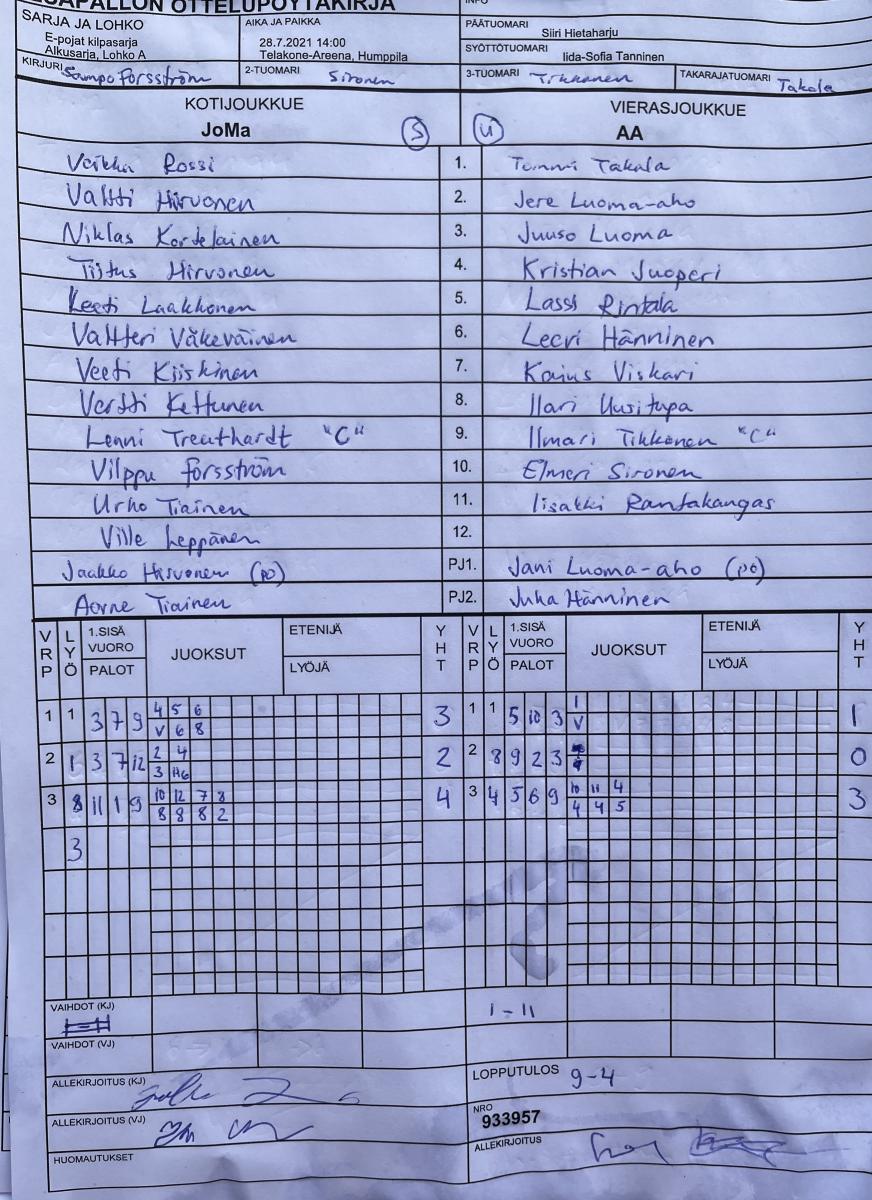 PESÄPALLON OTTELUPÖYTÄKIRJA
INFO
SARJA JA LOHKO
E-pojat kilpasarja
Alkusarja, Lohko A
AIKA JA PAIKKA
28.7.2021 14:00
Telakone-Areena, Humppila
PÄÄTUOMARI
Siiri Hietaharju
SYÖTTÖTUOMARI
Iida-Sofia Tanninen
KIRJURI Sampo Forsström
2-TUOMARI Sironen
3-TUOMARI Tikkanen
TAKARAJATUOMARI Takala
KOTIJOUKKUE
JoMa
S
U
VIERASJOUKKUE
AA
Veikka Rossi 1. Tommi Takala
Valtti Hirvonen 2. Jere Luoma-aho
Niklas Kortelainen 3. Juuso Luoma
Tiitus Hirvonen 4. Kristian Juoperi
Leeti Laakkonen 5. Lassi Rintala
Valtteri Väkeväinen 6. Leevi Hänninen
Veeti Kiiskinen 7. Kaius Viskari
Vertti Kettunen 8. Ilari Uusitupa
Lenni Treuthardt "C" 9. Ilmari Tikkonen "C"
Vilppu Forsström 10. Elmeri Sironen
Urho Tiainen 11. Iisakki Rantakangas
Ville Leppänen 12.
Jaakko Hirvonen (po) PJ1. Jani Luoma-aho (po)
Aarne Tiainen PJ2. Juha Hänninen
VRP LYÖ 1.SISÄ VUORO PALOT JUOKSUT ETENIJÄ LYÖJÄ YHT VRP LYÖ 1.SISÄ VUORO PALOT JUOKSUT ETENIJÄ LYÖJÄ YHT
1 1 3 7 9 4 5 6 3 1 1 5 10 3 1 1
V 6 8 V
2 1 3 7 12 2 4 2 2 8 9 2 3 0
3 H6
3 8 11 1 9 10 12 7 8 4 3 4 5 6 9 10 11 4 3
8 8 8 2 4 4 5
3
VAIHDOT (KJ)
1-11
VAIHDOT (VJ)
ALLEKIRJOITUS (KJ)
LOPPUTULOS 9-4
ALLEKIRJOITUS (VJ)
NRO
933957
HUOMAUTUKSET
ALLEKIRJOITUS